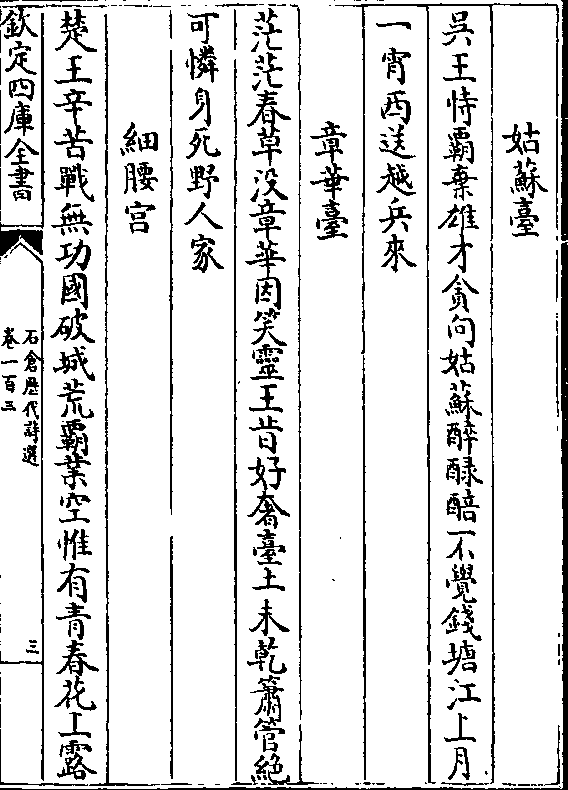 姑蘇臺
吳王恃霸棄雄才貪向姑蘇醉醁醅不覺錢塘江上月
一宵西送越兵來
章華臺
茫茫春草没章華因笑靈王昔好奢臺土未乾簫管絶
可憐身死野人家
細腰宫
楚王辛苦戰無功國破城荒霸業空惟有青春花上露
欽定四庫全書
石倉歷代詩選
卷一百三
三